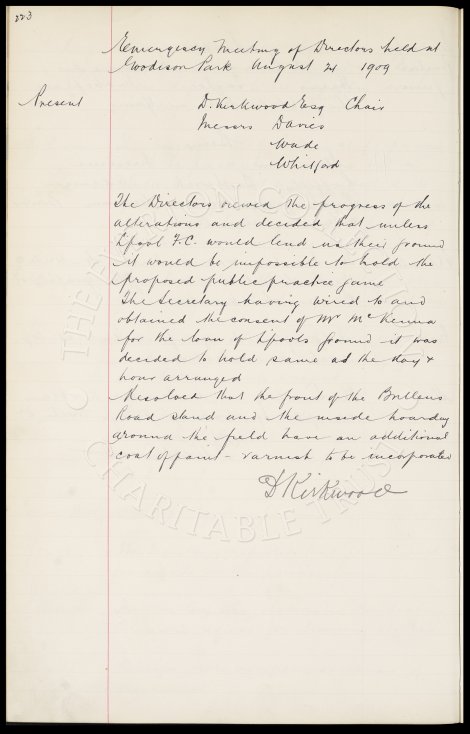 223
Emergency Meeting of Directors held at
Goodison Park August 21 1909
Present D. Kirkwood Esq Chair
Messrs Davies
Wade
Whitford
The Directors viewed the progress of the
alterations and decided that unless
Lpool F.C. would lend us their ground
it would be impossible to hold the
proposed public practice game
The Secretary having wired to and
obtained the consent of Mr McKenna
for the loan of Lpools ground it was
decided to hold same at the day &
hour arranged
Resolved that the front of the Bullens
Road stand and the inside hoarding
around the field have an additional
coat of paint - varnish to be incorporated
D Kirkwood
THE EVERTON COLLECTION
CHARITABLE TRUST